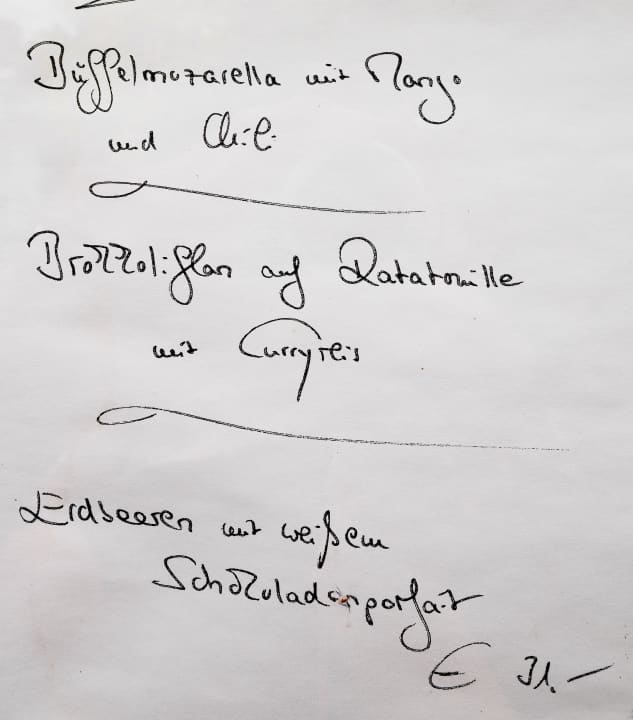 Büffelmozarella mit Mango
und Chili
Brokkoliflan auf Ratatouille
mit Curryreis
Erdbeeren mit weißem
Schokoladenparfait
€ 31,—